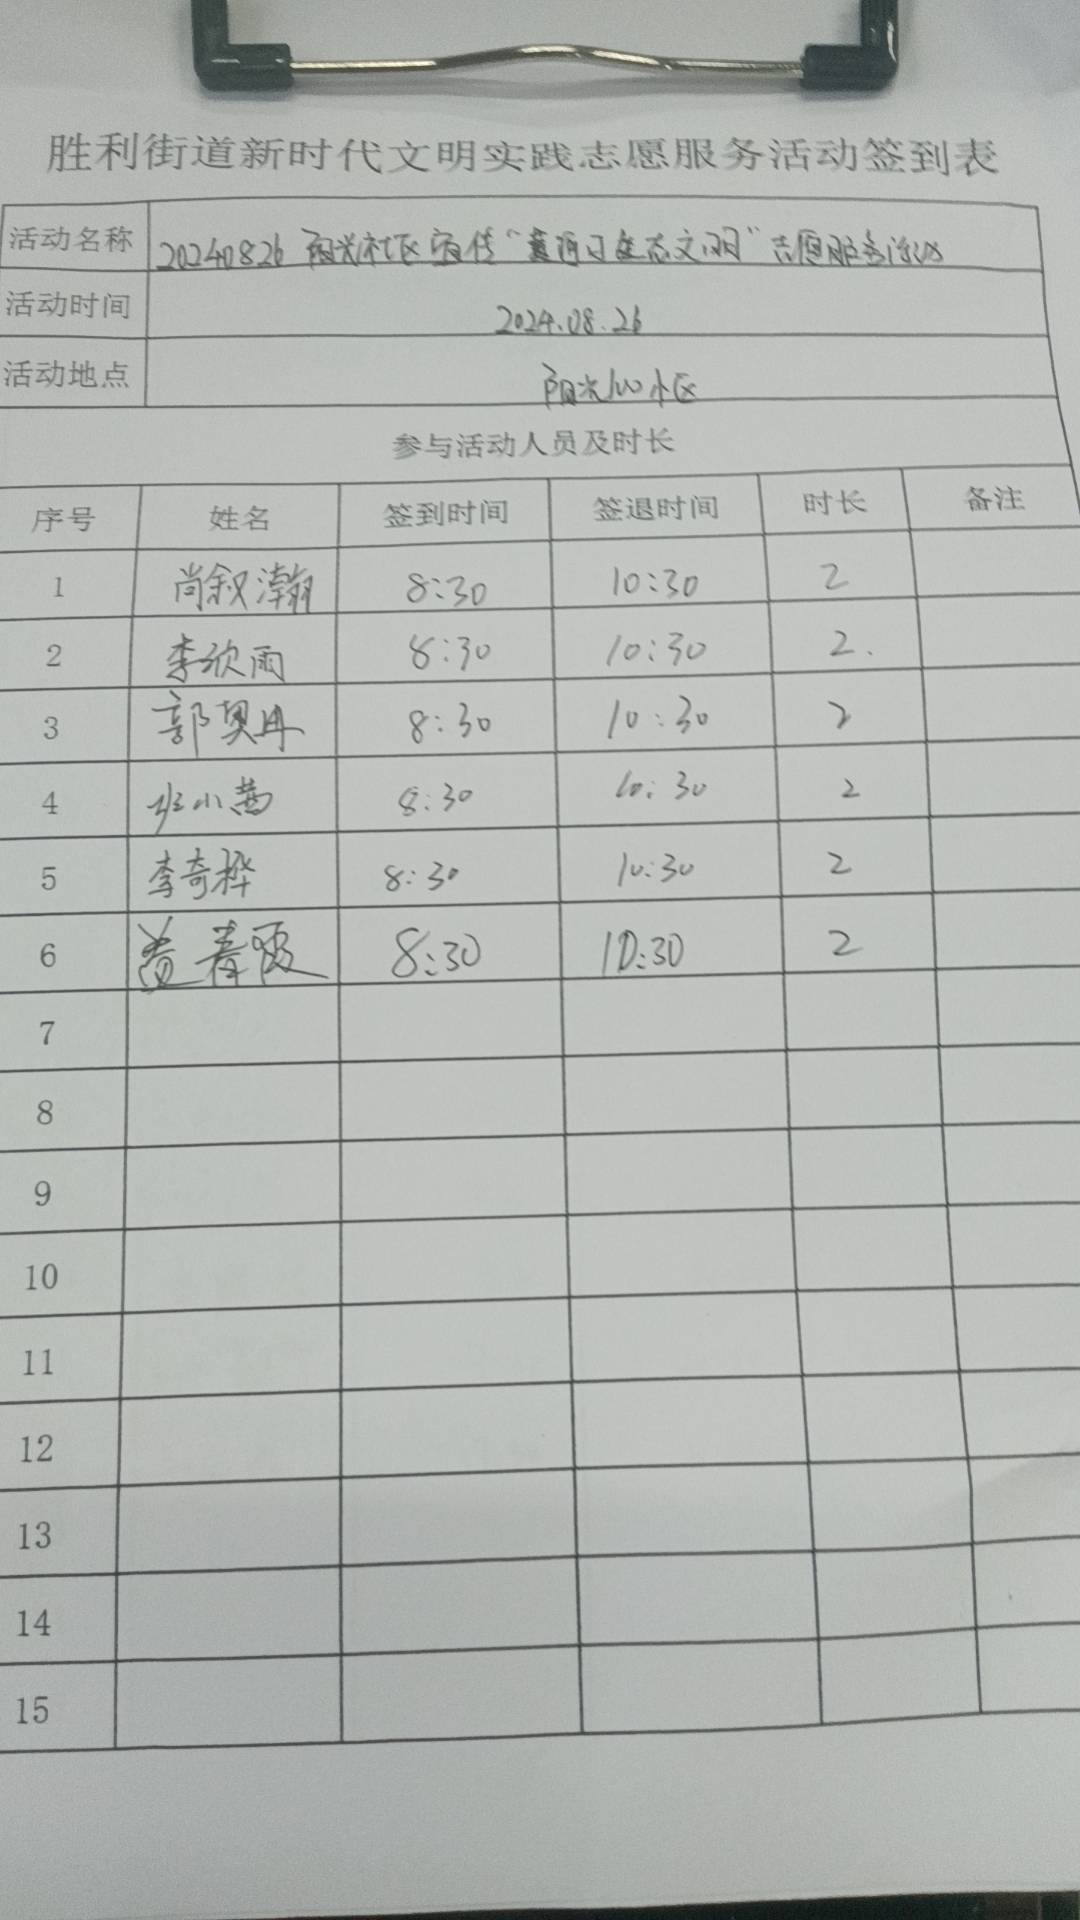 胜利街道新时代文明实践志愿服务活动签到表
活动名称 20240826 阳光社区宣传“黄河口生态文明”志愿服务活动
活动时间 2024.08.26
活动地点 阳光100小区
参与活动人员及时长
序号 姓名 签到时间 签退时间 时长 备注
1 尚叙瀚 8:30 10:30 2
2 李欣雨 8:30 10:30 2.
3 郭奥冉 8:30 10:30 2
4 班小茜 8:30 10:30 2
5 李奇桦 8:30 10:30 2
6 春霞 8:30 10:30 2
7
8
9
10
11
12
13
14
15